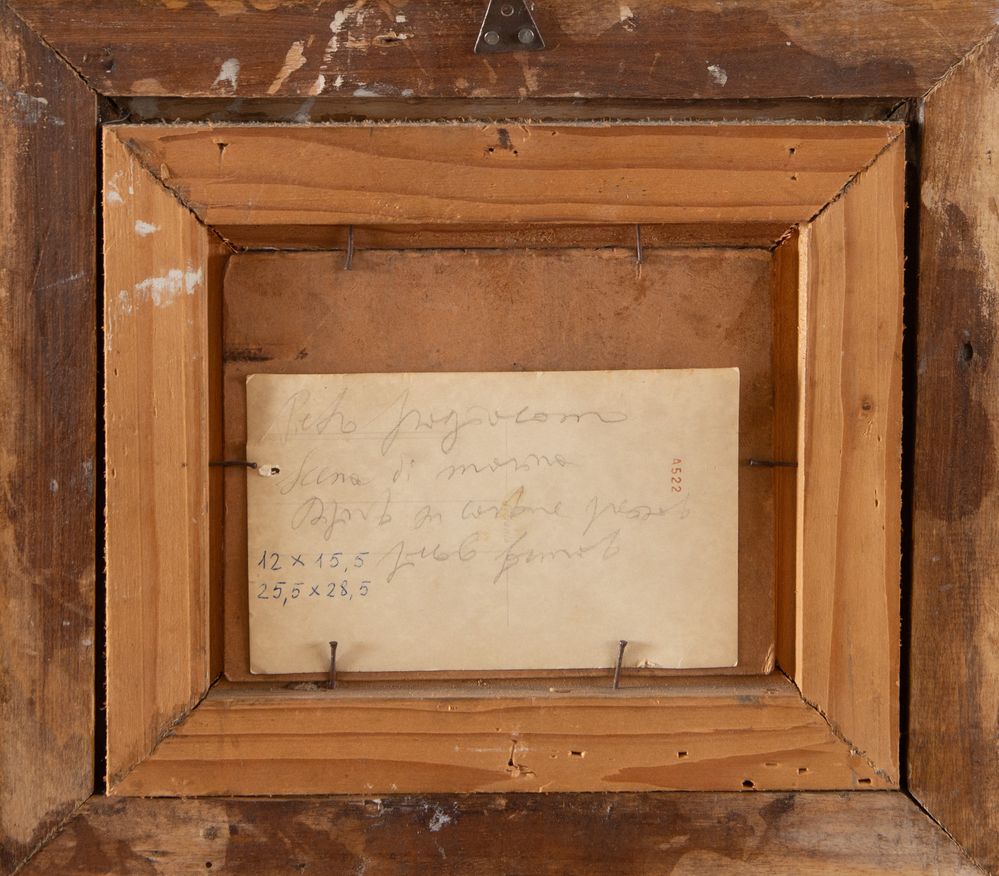 Pietro Fragiacomo
Scena di marina
Dipinto su cartone pressato
12 x 15,5
25,5 x 28,5
A522